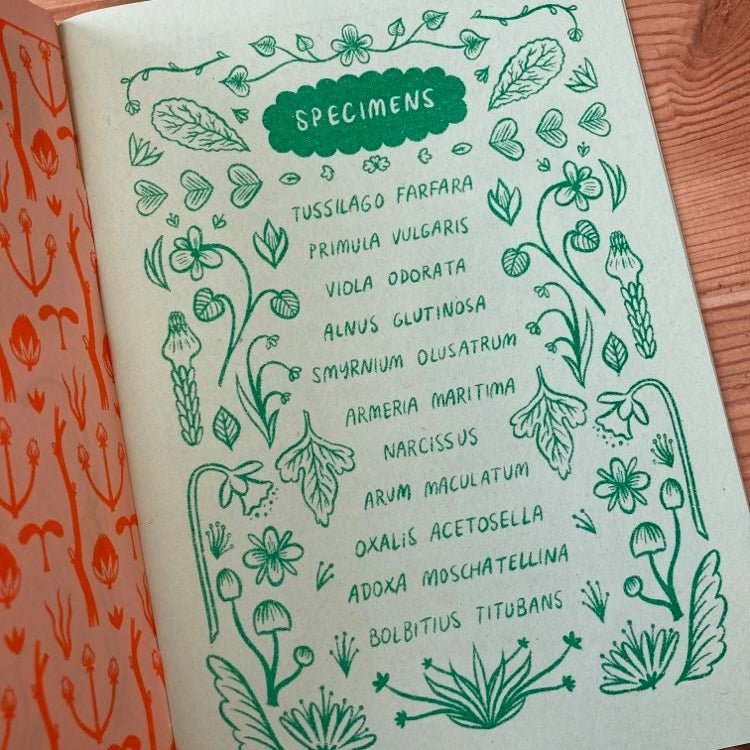 SPECIMENS
TUSSILAGO FARFARA
PRIMULA VULGARIS
VIOLA ODORATA
ALNUS GLUTINOSA
SMYRNIUM OLUSATRUM
ARMERIA MARITIMA
NARCISSUS
ARUM MACULATUM
OXALIS ACETOSELLA
ADOXA MOSCHATELLINA
BOLBITIUS TITUBANS